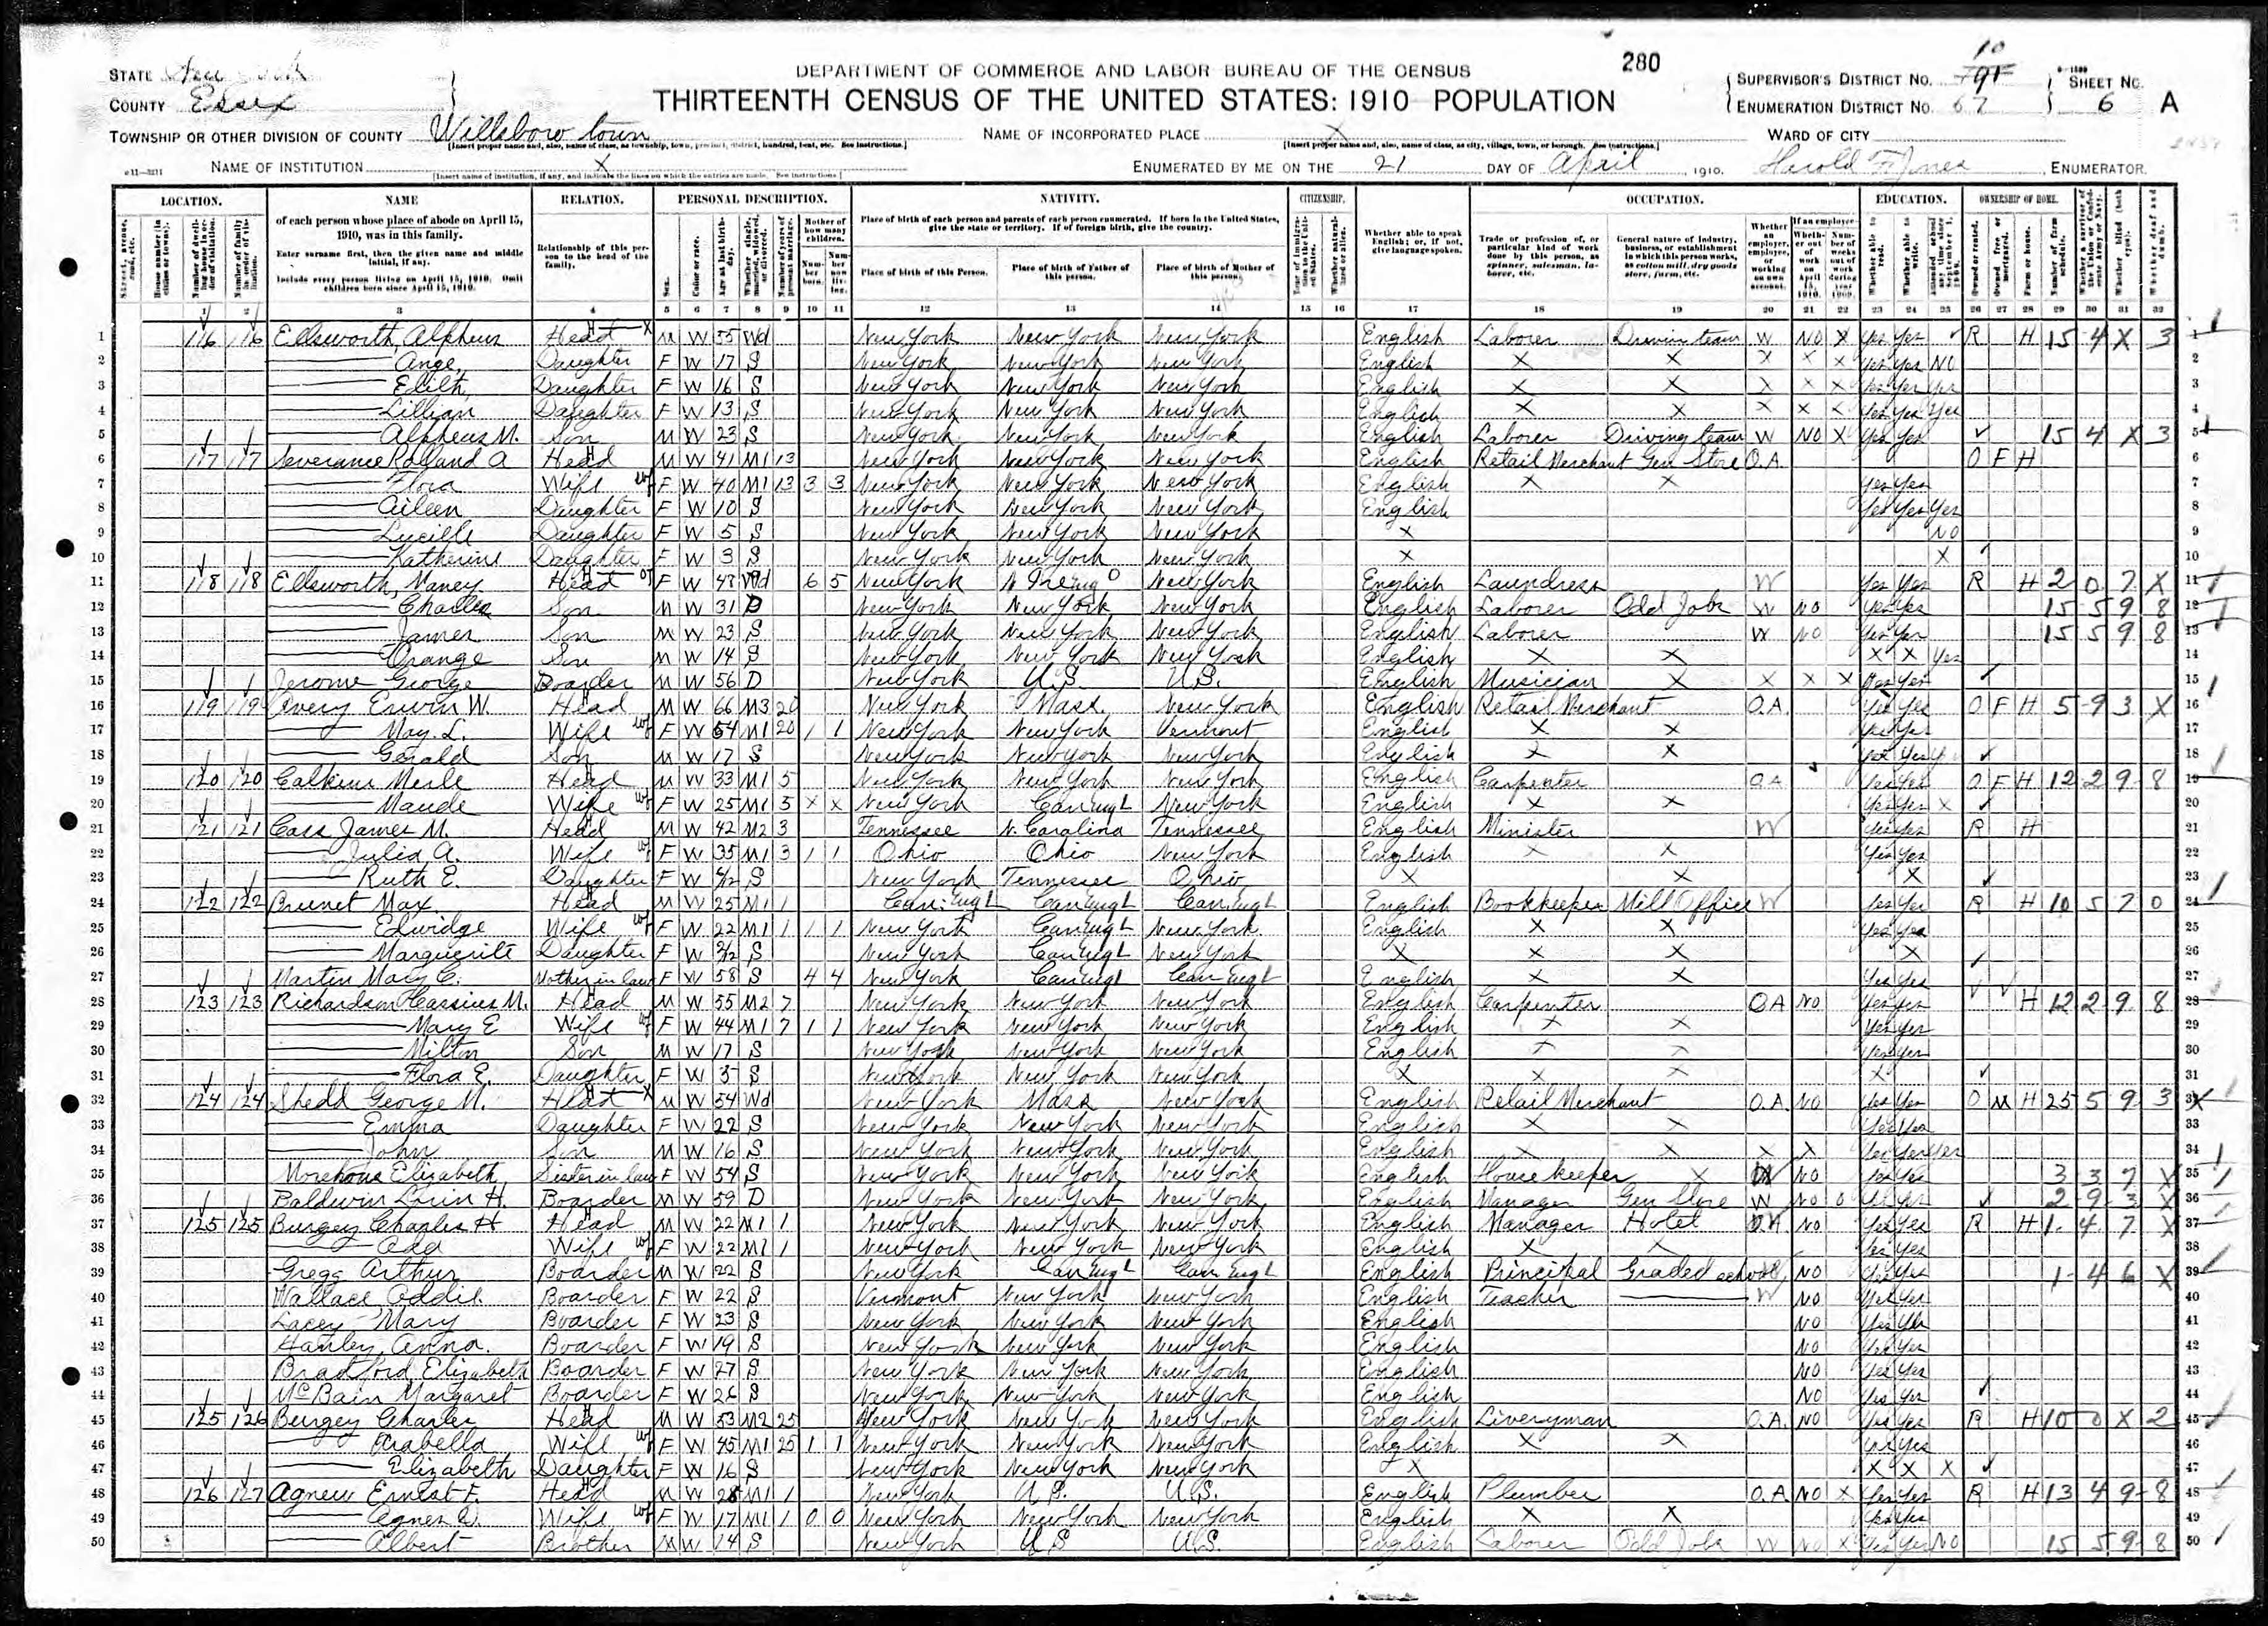 280
DEPARTMENT OF COMMERCE AND LABOR BUREAU OF THE CENSUS
THIRTEENTH CENSUS OF THE UNITED STATES: 1910 POPULATION
STATE New York
COUNTY Essex
SUPERVISOR'S DISTRICT NO. 10
ENUMERATION DISTRICT NO. 67
SHEET NO. 6 A
TOWNSHIP OR OTHER DIVISION OF COUNTY Willsboro town
NAME OF INCORPORATED PLACE X
WARD OF CITY
NAME OF INSTITUTION X
ENUMERATED BY ME ON THE 21 DAY OF April, 1910. Harold F. Jones, ENUMERATOR.
LOCATION. NAME RELATION. PERSONAL DESCRIPTION. NATIVITY. CITIZENSHIP. OCCUPATION. EDUCATION. OWNERSHIP OF HOME.
of each person whose place of abode on April 15, 1910, was in this family.
Enter surname first, then the given name and middle initial, if any.
Include every person living on April 15, 1910. Omit children born since April 15, 1910.
Relationship of this person to the head of the family.
Place of birth of each person and parents of each person enumerated. If born in the United States, give the state or territory. If of foreign birth, give the country.
Place of birth of this Person. Place of birth of Father of this person. Place of birth of Mother of this person.
Whether able to speak English; or, if not, give language spoken.
1 2 3 4 5 6 7 8 9 10 11 12 13 14 15 16 17 18 19 20 21 22 23 24 25 26 27 28 29 30 31 32
1 116 116 Ellsworth, Alpheus Head M W 55 Wd New York New York New York English Laborer Driving team W NO X Yes Yes R H 15 4 X 3
2 Ange, Daughter F W 17 S New York New York New York English X X X X X Yes Yes NO
3 Edith, Daughter F W 16 S New York New York New York English X X X X X Yes Yes Yes
4 Lillian Daughter F W 13 S New York New York New York English X X X X X Yes Yes Yes
5 Alpheus M. Son M W 23 S New York New York New York English Laborer Driving team W NO X Yes Yes 15 4 X 3
6 117 117 Severance Rolland A Head M W 41 M1 13 New York New York New York English Retail Merchant Gen Store O.A. O F H
7 Flora Wife F W 40 M1 13 3 3 New York New York New York English X X Yes Yes
8 Aileen Daughter F W 10 S New York New York New York English Yes Yes Yes
9 Lucille Daughter F W 5 S New York New York New York X NO
10 Katherine Daughter F W 3 S New York New York New York X X
11 118 118 Ellsworth, Nancy Head F W 47 Wd 6 5 New York New York English Laundress W Yes Yes R H 2 0 7 X
12 Charles Son M W 31 D New York New York New York English Laborer Odd Jobs W NO Yes Yes 15 5 9 8
13 James Son M W 23 S New York New York New York English Laborer W NO Yes Yes 15 5 9 8
14 Orange Son M W 14 S New York New York New York English X X X X Yes
15 Jerome George Boarder M W 56 D New York U.S. U.S. English Musician X X X X Yes Yes
16 119 119 Avery Erwin W. Head M W 66 M3 20 New York Mass. New York English Retail Merchant O.A. Yes Yes O F H 5 9 3 X
17 May. L. Wife F W 54 M1 20 1 1 New York New York Vermont English X X Yes Yes
18 Gerald Son M W 17 S New York New York New York English X X Yes Yes Yes
19 120 120 Calkins Merle Head M W 33 M1 5 New York New York New York English Carpenter O A Yes Yes O F H 12 2 9 8
20 Maude Wife F W 25 M1 5 X X New York Can Engl New York English X X Yes Yes X
21 121 121 Cass James M. Head M W 42 M2 3 Tennessee N. Carolina Tennessee English Minister W Yes Yes R H
22 Julia A. Wife F W 35 M1 3 1 1 Ohio Ohio New York English X X Yes Yes
23 Ruth E. Daughter F W S New York Tennessee Ohio X X X
24 122 122 Brunet Max Head M W 25 M1 1 Can. Engl Can Engl Can. Engl English Bookkeeper Mill Office W Yes Yes R H 10 5 7 0
25 Edwidge Wife F W 22 M1 1 1 1 New York Can Engl New York English X X Yes Yes
26 Marguerite Daughter F W S New York Can Engl New York X X X X
27 Martin Mary C. Mother in law F W 58 S 4 4 New York Can Engl Can Engl English X X Yes Yes
28 123 123 Richardson Cassius M. Head M W 55 M2 7 New York New York New York English Carpenter O A NO Yes Yes H 12 2 9 8
29 Mary E Wife F W 44 M1 7 1 1 New York New York New York English X X Yes Yes
30 Milton Son M W 17 S New York New York New York English X X Yes Yes
31 Flora E. Daughter F W 5 S New York New York New York X X X X
32 124 124 Shedd George M. Head M W 54 Wd New York Mass New York English Retail Merchant O.A. NO Yes Yes O M H 25 5 9 3 X
33 Emma Daughter F W 22 S New York New York New York English X X Yes Yes
34 John Son M W 16 S New York New York New York English X X X X Yes Yes Yes
35 Morehous Elizabeth Sister in law F W 54 S New York New York New York English House keeper X W NO Yes Yes 3 3 7 X
36 Baldwin Lorin H. Boarder M W 59 D New York New York New York English Manager Gen Store W NO 0 Yes Yes 2 9 3 X
37 125 125 Burgey Charles H Head M W 22 M1 1 New York New York New York English Manager Hotel NO Yes Yes R H 1 4 7 X
38 Ada Wife F W 22 M1 1 New York New York New York English X X Yes Yes
39 Gregg Arthur Boarder M W 22 S New York Can Engl Can Engl English Principal Graded school NO Yes Yes 1 4 6 X
40 Wallace Addie. Boarder F W 22 S Vermont New York New York English Teacher W NO Yes Yes
41 Lacey Mary Boarder F W 23 S New York New York New York English NO Yes Yes
42 Hanley, Anna. Boarder F W 19 S New York New York New York English NO Yes Yes
43 Bradford Elizabeth Boarder F W 27 S New York New York New York English NO Yes Yes
44 McBain Margaret Boarder F W 26 S New York New York New York English NO Yes Yes
45 125 126 Burgey Charles Head M W 53 M2 25 New York New York New York English Liveryman O.A. NO Yes Yes R H 10 0 X 2
46 Arabella Wife F W 45 M1 25 1 1 New York New York New York English X X Yes Yes
47 Elizabeth Daughter F W 16 S New York New York New York X X X X
48 126 127 Agnew Ernest F. Head M W 28 M1 1 New York U.S. U.S. English Plumber O.A. NO X Yes Yes R H 13 4 9 8
49 Agnes D. Wife F W 17 M1 1 0 0 New York New York New York English X X Yes Yes
50 Albert Brother M W 14 S New York U S U.S. English Laborer Odd Jobs W NO X Yes Yes NO 15 5 9 8